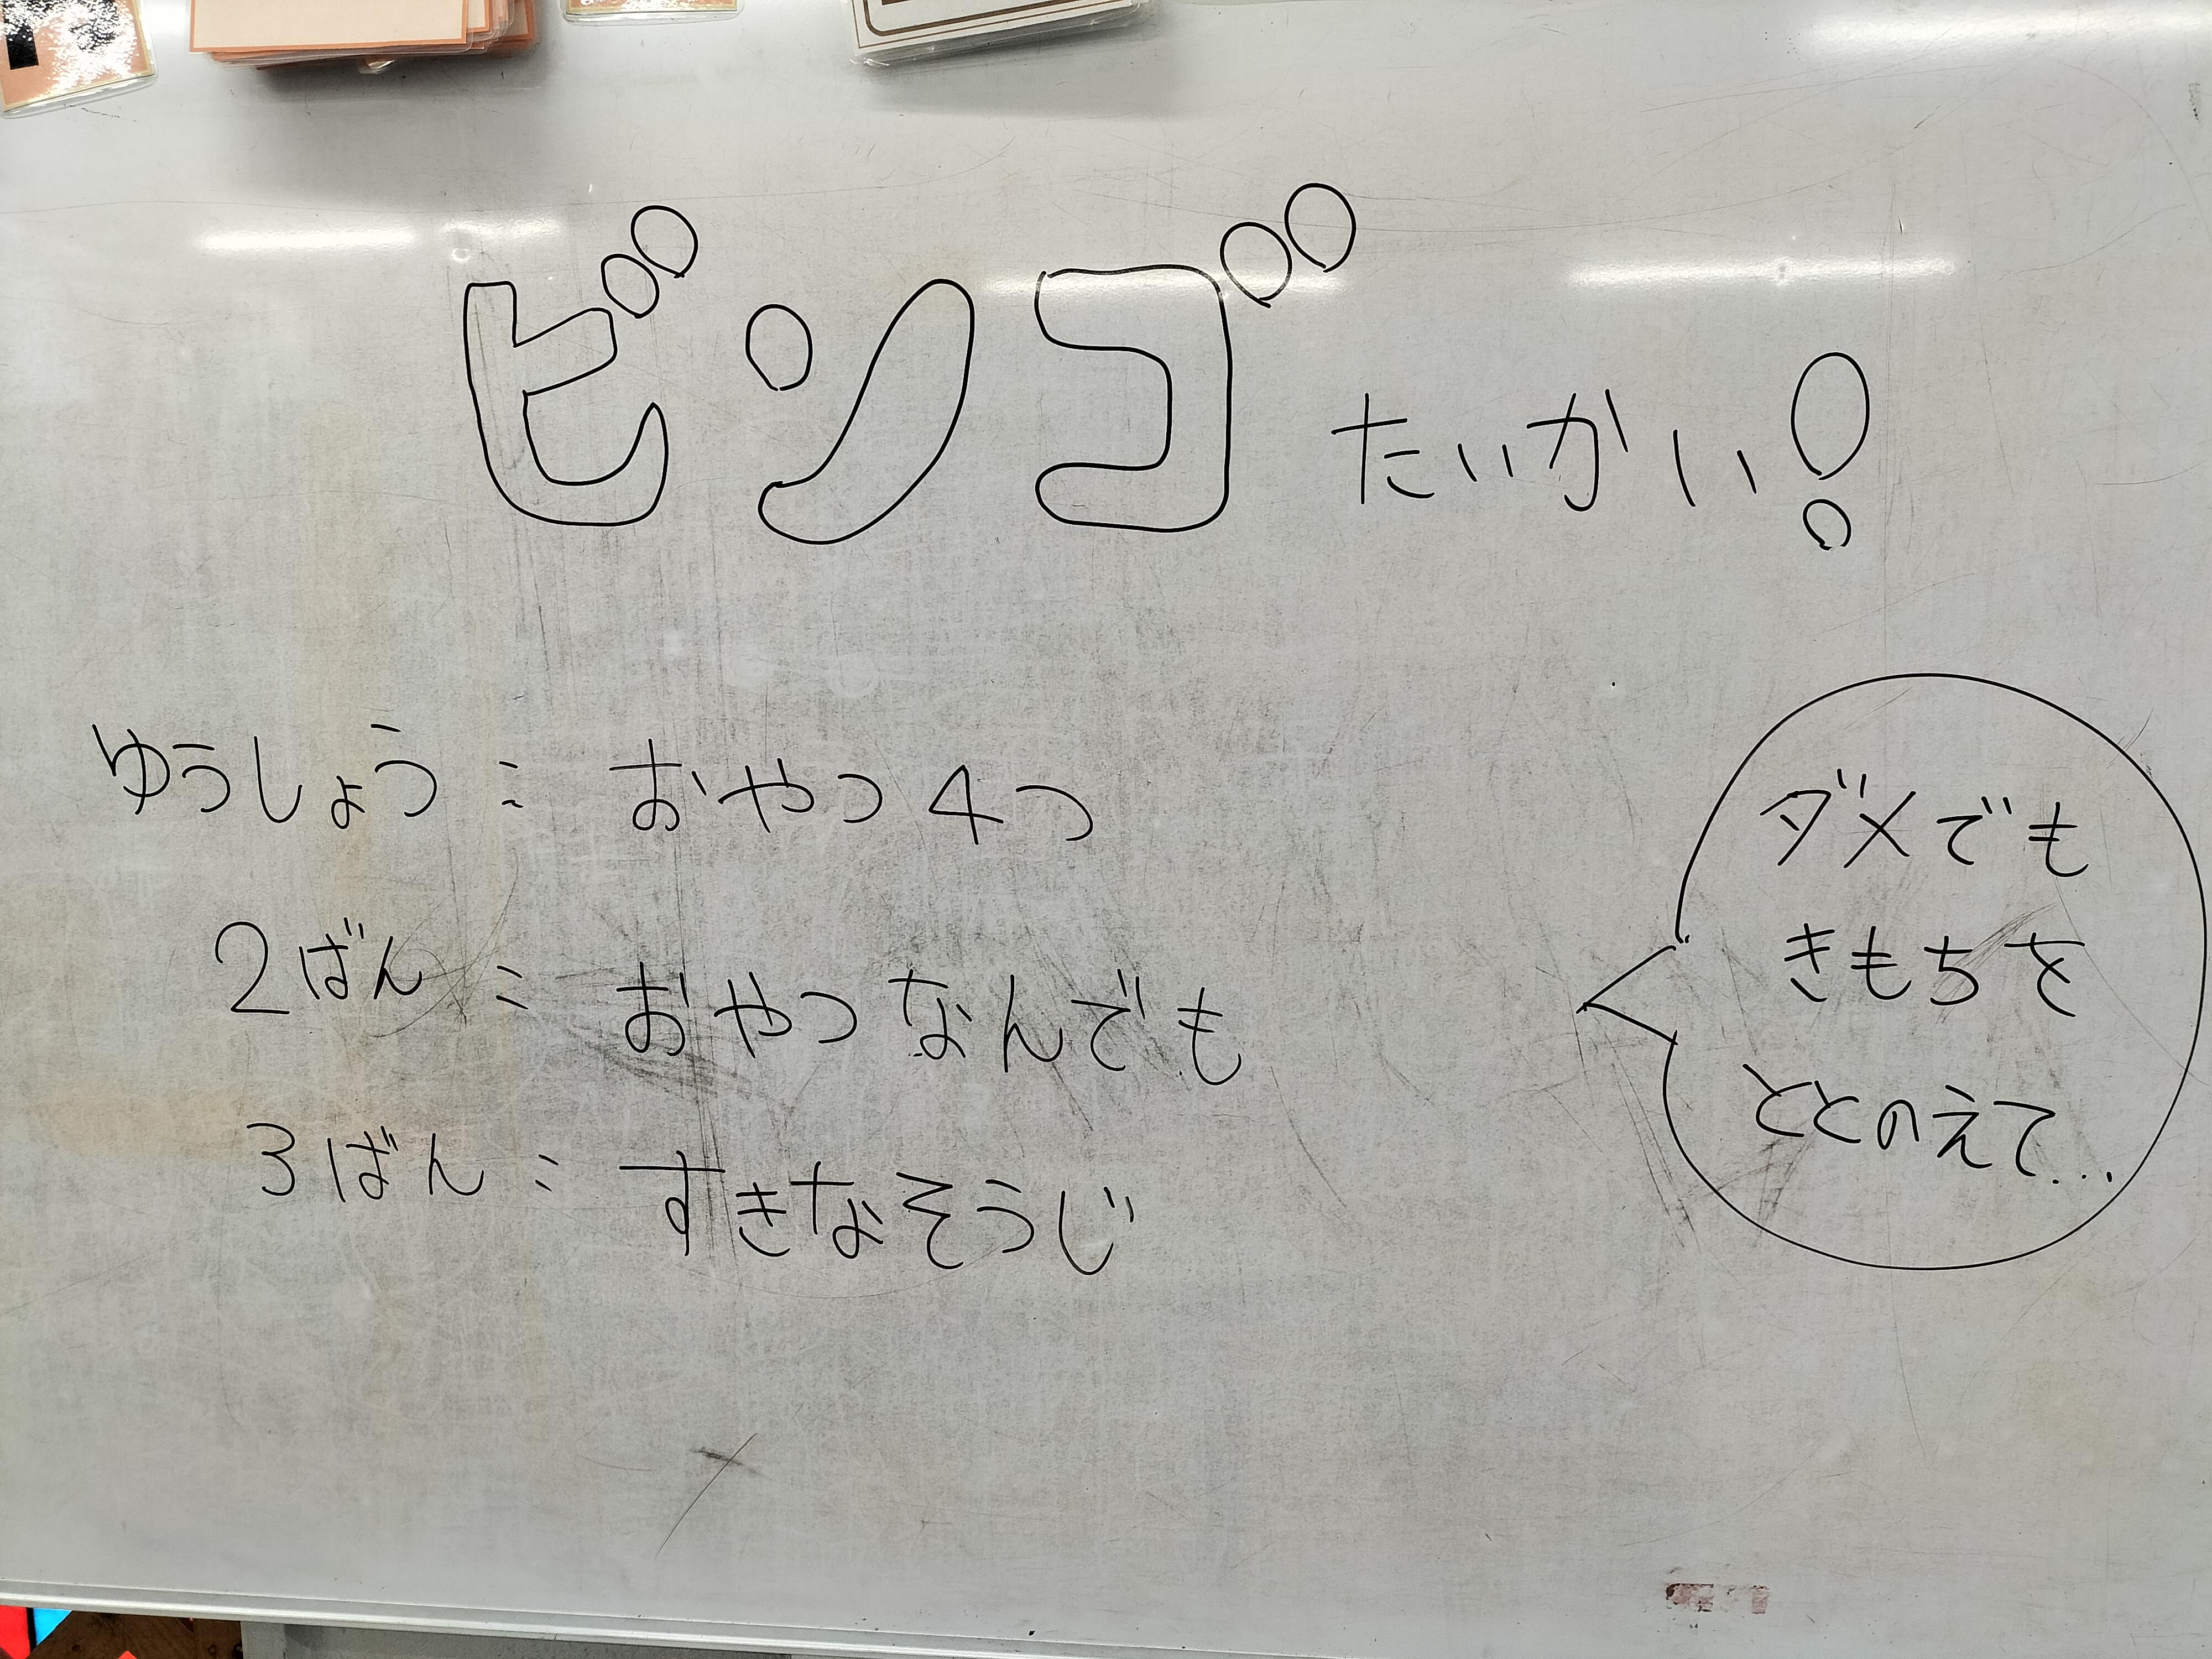 ビンゴたいかい!
ゆうしょう：おやつ4つ
2ばん：おやつなんでも
3ばん：すきなそうじ
ダメでも
きもちを
ととのえて...